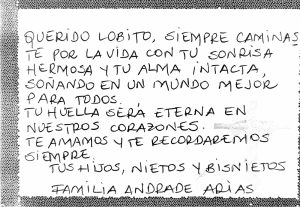 QUERIDO LOBITO, SIEMPRE CAMINAS
TE POR LA VIDA CON TU SONRISA
HERMOSA Y TU ALMA INTACTA,
SOÑANDO EN UN MUNDO MEJOR
PARA TODOS.
TU HUELLA SERÁ ETERNA EN
NUESTROS CORAZONES.
TE AMAMOS Y TE RECORDAREMOS
SIEMPRE.
TUS HIJOS, NIETOS Y BISNIETOS
FAMILIA ANDRADE ARIAS